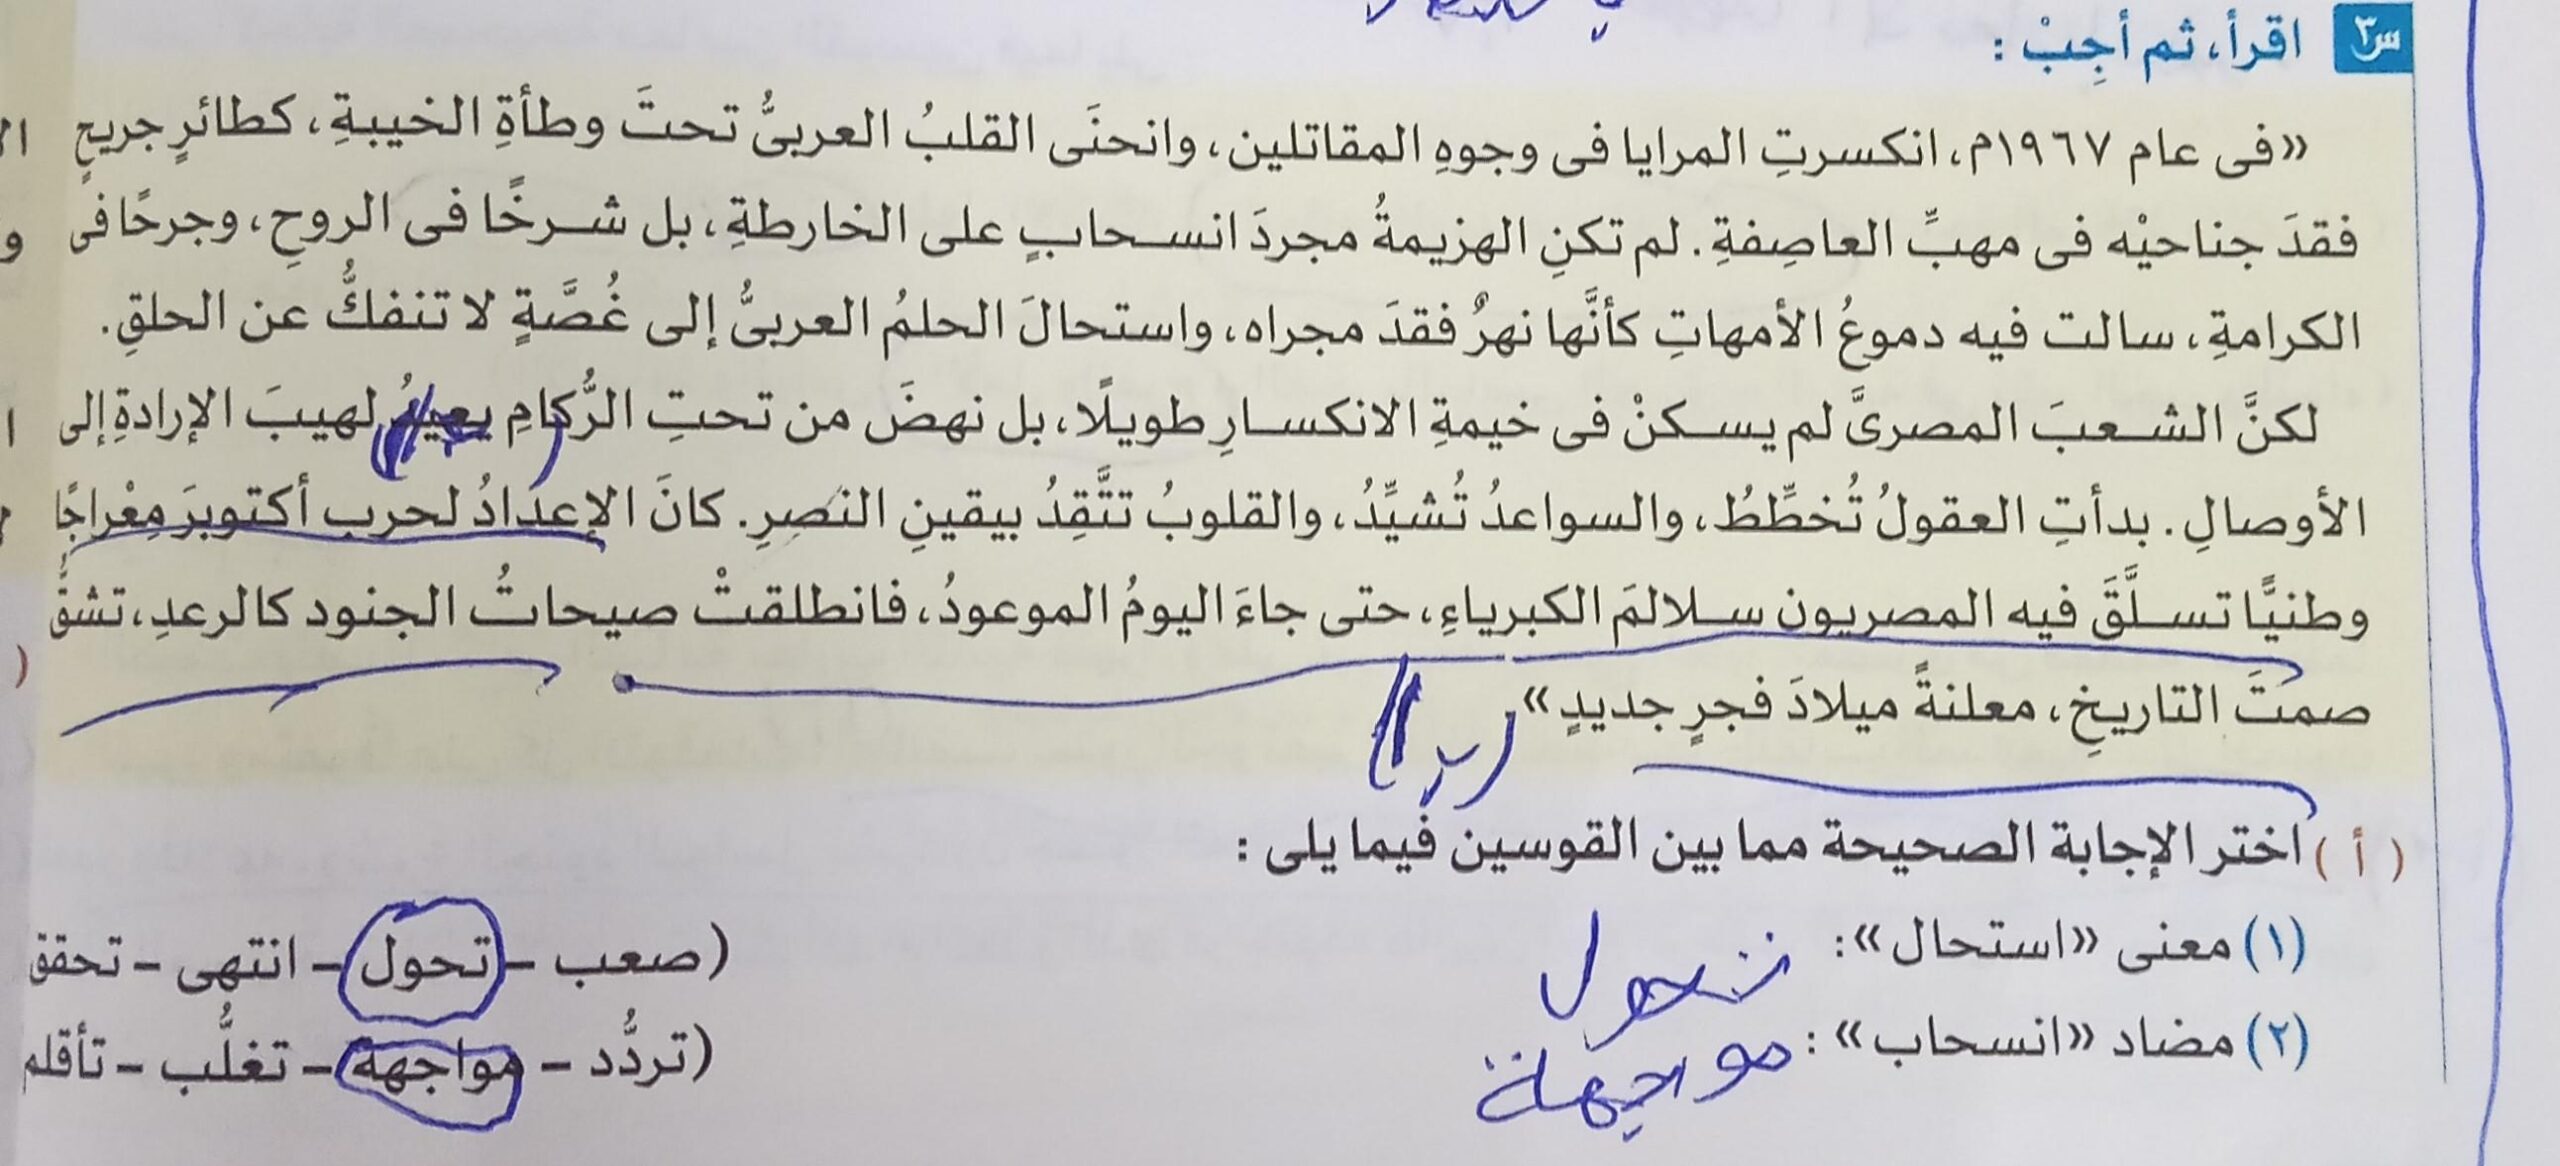 س٣ اقرأ، ثم أجِبْ :
«فى عام ١٩٦٧م، انكسرتِ المرايا فى وجوهِ المقاتلين، وانحنَى القلبُ العربىُّ تحتَ وطأةِ الخيبةِ، كطائرٍ جريحٍ
فقدَ جناحيْه فى مهبِّ العاصِفةِ. لم تكنِ الهزيمةُ مجردَ انسحابٍ على الخارطةِ، بل شرخًا فى الروحِ، وجرحًا فى
الكرامةِ، سالت فيه دموعُ الأمهاتِ كأنَّها نهرٌ فقدَ مجراه، واستحالَ الحلمُ العربىُّ إلى غُصَّةٍ لا تنفكُّ عن الحلقِ.
لكنَّ الشعبَ المصرىَّ لم يسكنْ فى خيمةِ الانكسارِ طويلًا، بل نهضَ من تحتِ الرُّكامِ يعيدُ لهيبَ الإرادةِ إلى
الأوصالِ. بدأتِ العقولُ تُخطِّطُ، والسواعدُ تُشيِّدُ، والقلوبُ تتَّقِدُ بيقينِ النصرِ. كانَ الإعدادُ لحربِ أكتوبرَ مِعْراجًا
وطنيًّا تسلَّقَ فيه المصريون سلالمَ الكبرياءِ، حتى جاءَ اليومُ الموعودُ، فانطلقتْ صيحاتُ الجنود كالرعدِ، تشقُّ
صمتَ التاريخِ، معلنةً ميلادَ فجرٍ جديدٍ».
( أ ) اختر الإجابة الصحيحة مما بين القوسين فيما يلى :
(١) معنى «استحال»: تحول (صعب – تحول – انتهى – تحقق
(٢) مضاد «انسحاب»: مواجهة (تردُّد – مواجهة – تغلُّب – تأقلم